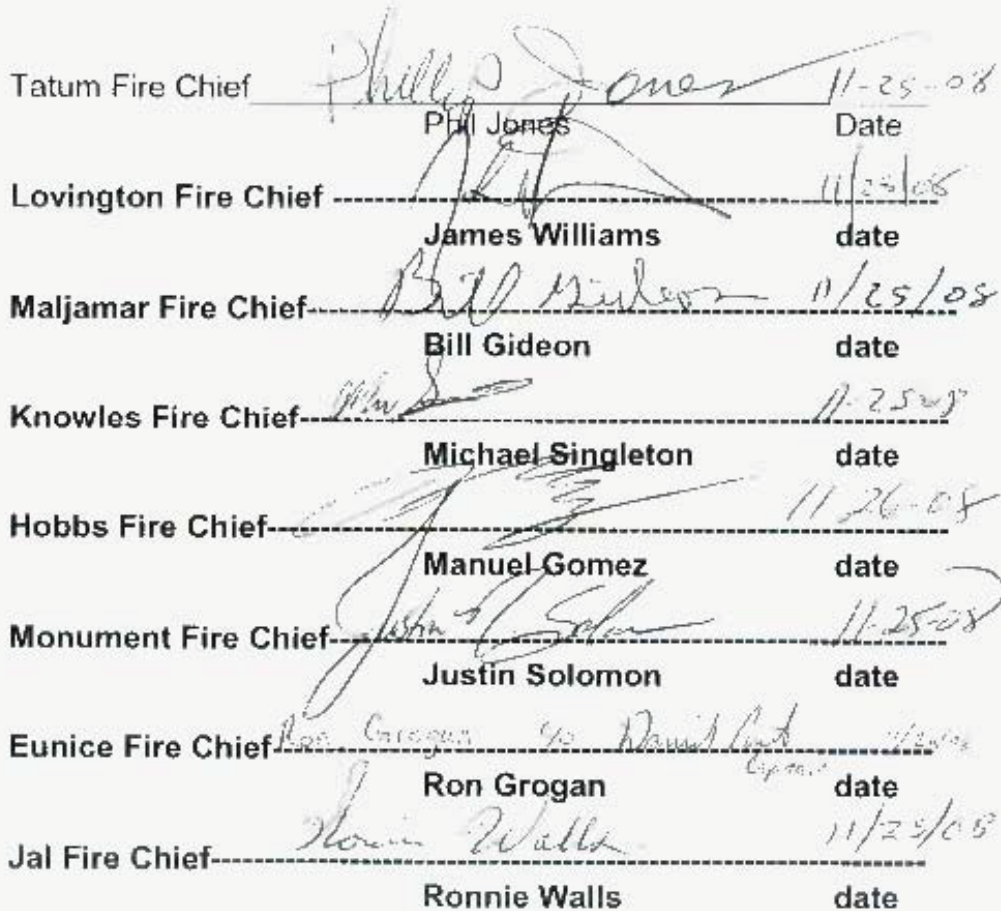 Tatum Fire Chief Phillip Jones 11-25-08
Phil Jones Date
Lovington Fire Chief 11/25/08
James Williams date
Maljamar Fire Chief Bill Gideon 11/25/08
Bill Gideon date
Knowles Fire Chief
Michael Singleton date
Hobbs Fire Chief 11-26-08
Manuel Gomez date
Monument Fire Chief Justin Solomon 11-25-08
Justin Solomon date
Eunice Fire Chief Ron Grogan David
Ron Grogan date
Jal Fire Chief Ronnie Walls 11/25/08
Ronnie Walls date